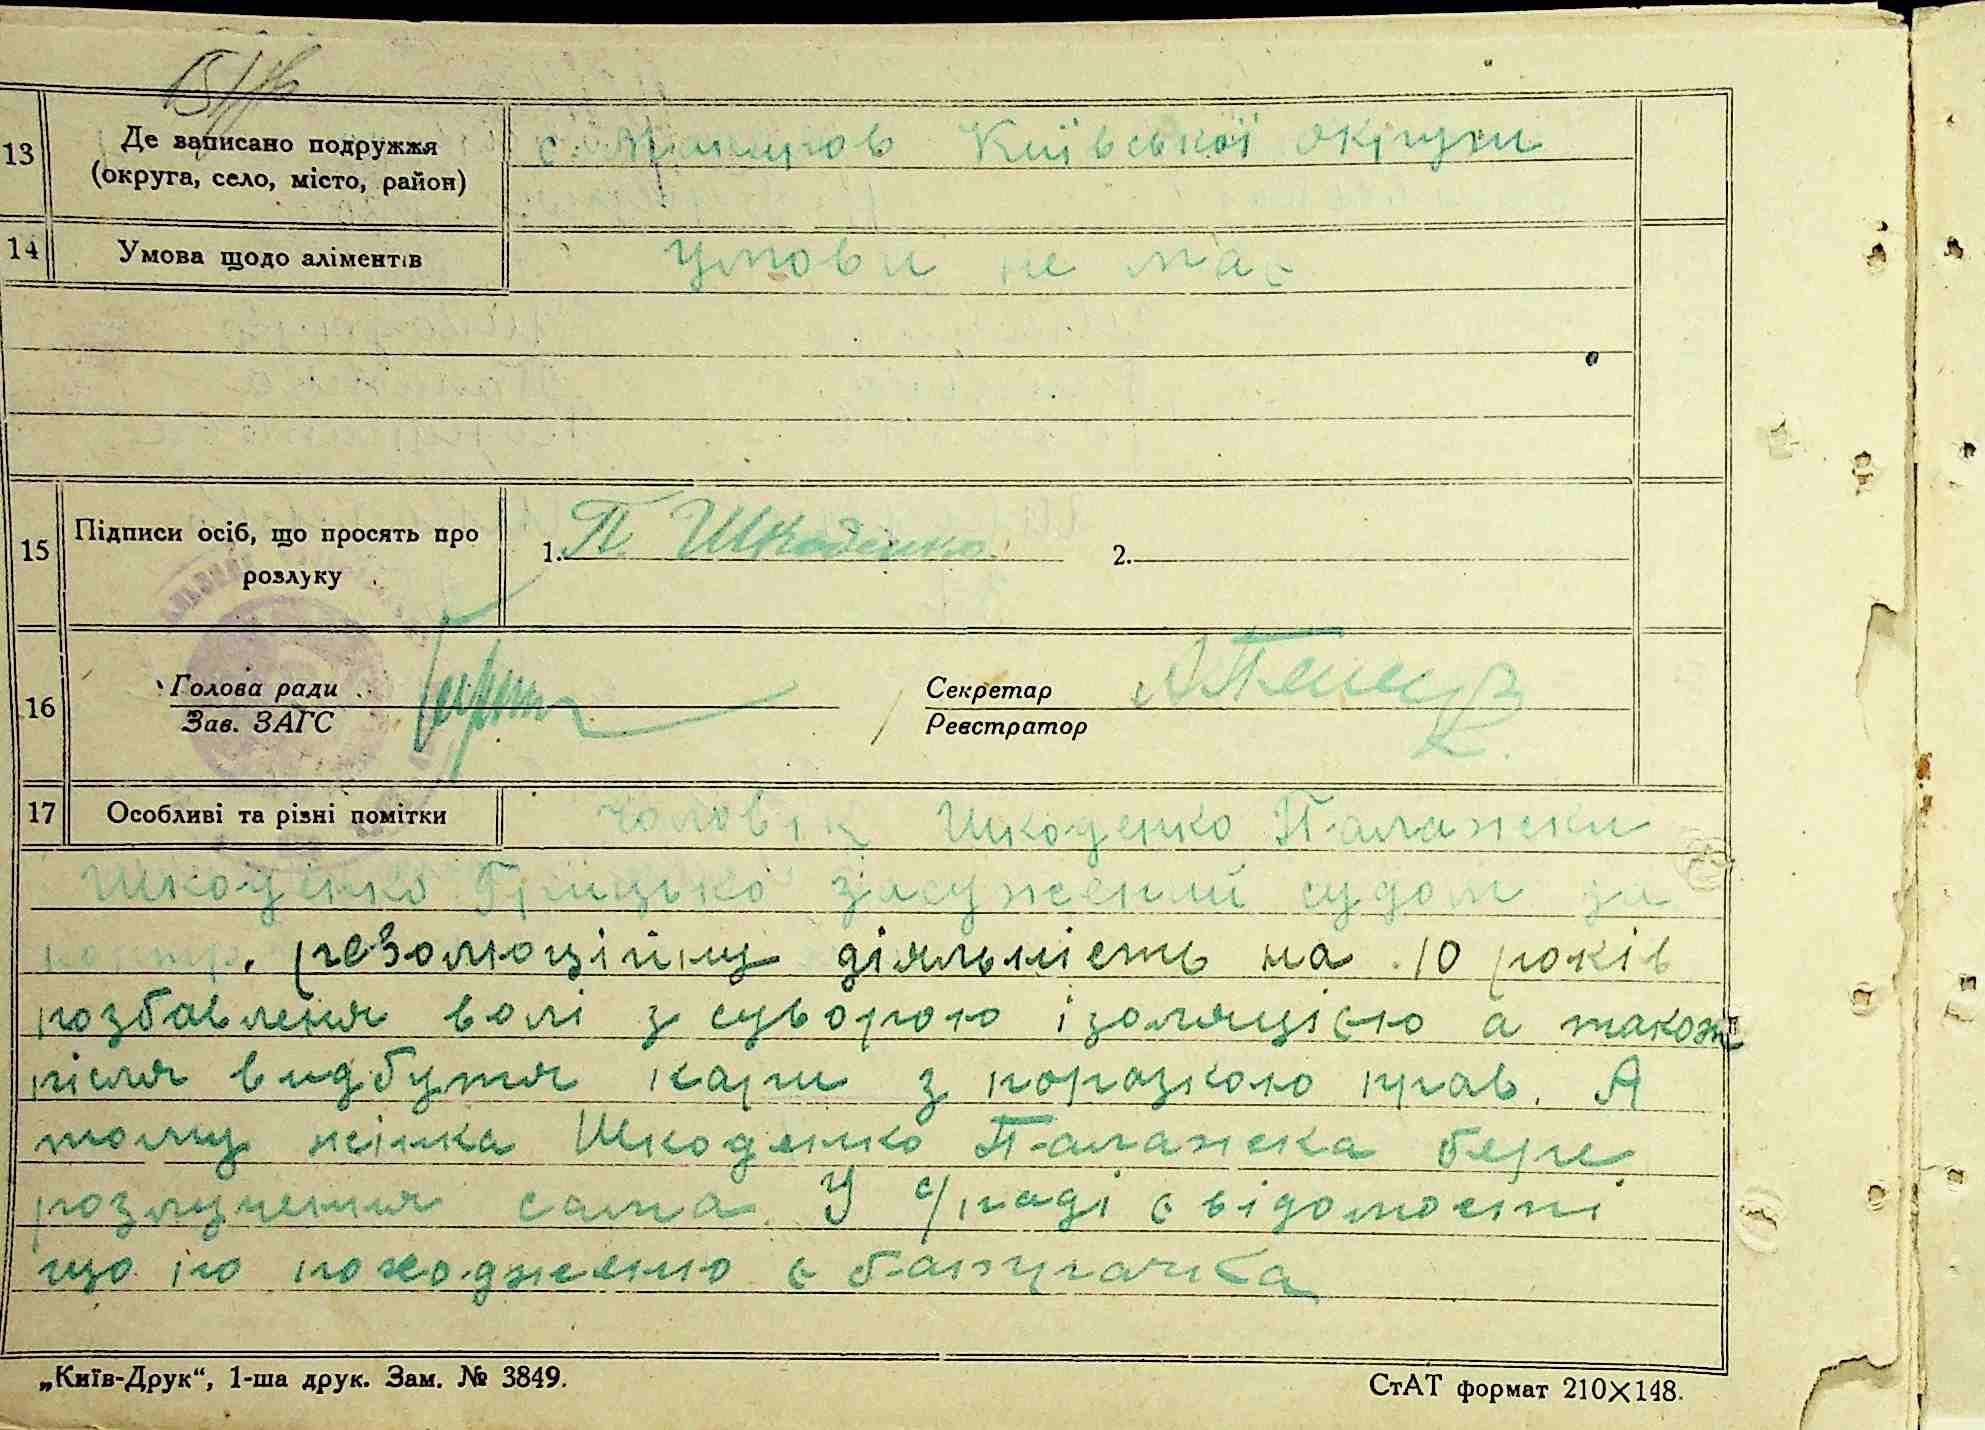 13
Де записано подружжя
(округа, село, місто, район)
с. Київської округи
14
Умова щодо аліментів
умови не має
15
Підписи осіб, що просять про
розлуку
1. П. Шкоденко
2.
16
Голова ради
Зав. ЗАГС
Секретар
Реєстратор
17
Особливі та різні помітки
чоловік Шкоденко Палажки
Шкоденко Грицько засужений судом за
контр. революційну діяльність на 10 років
розбавленя волі з суворою ізоляцією а також
після видбутя кари з поразкою прав. А
тому жінка Шкоденко Палажка бере
розлучення сама. У с/раді є відомости
що по походженю є батрачка
„Київ-Друк“, 1-ша друк. Зам. № 3849.
СтАТ формат 210×148.